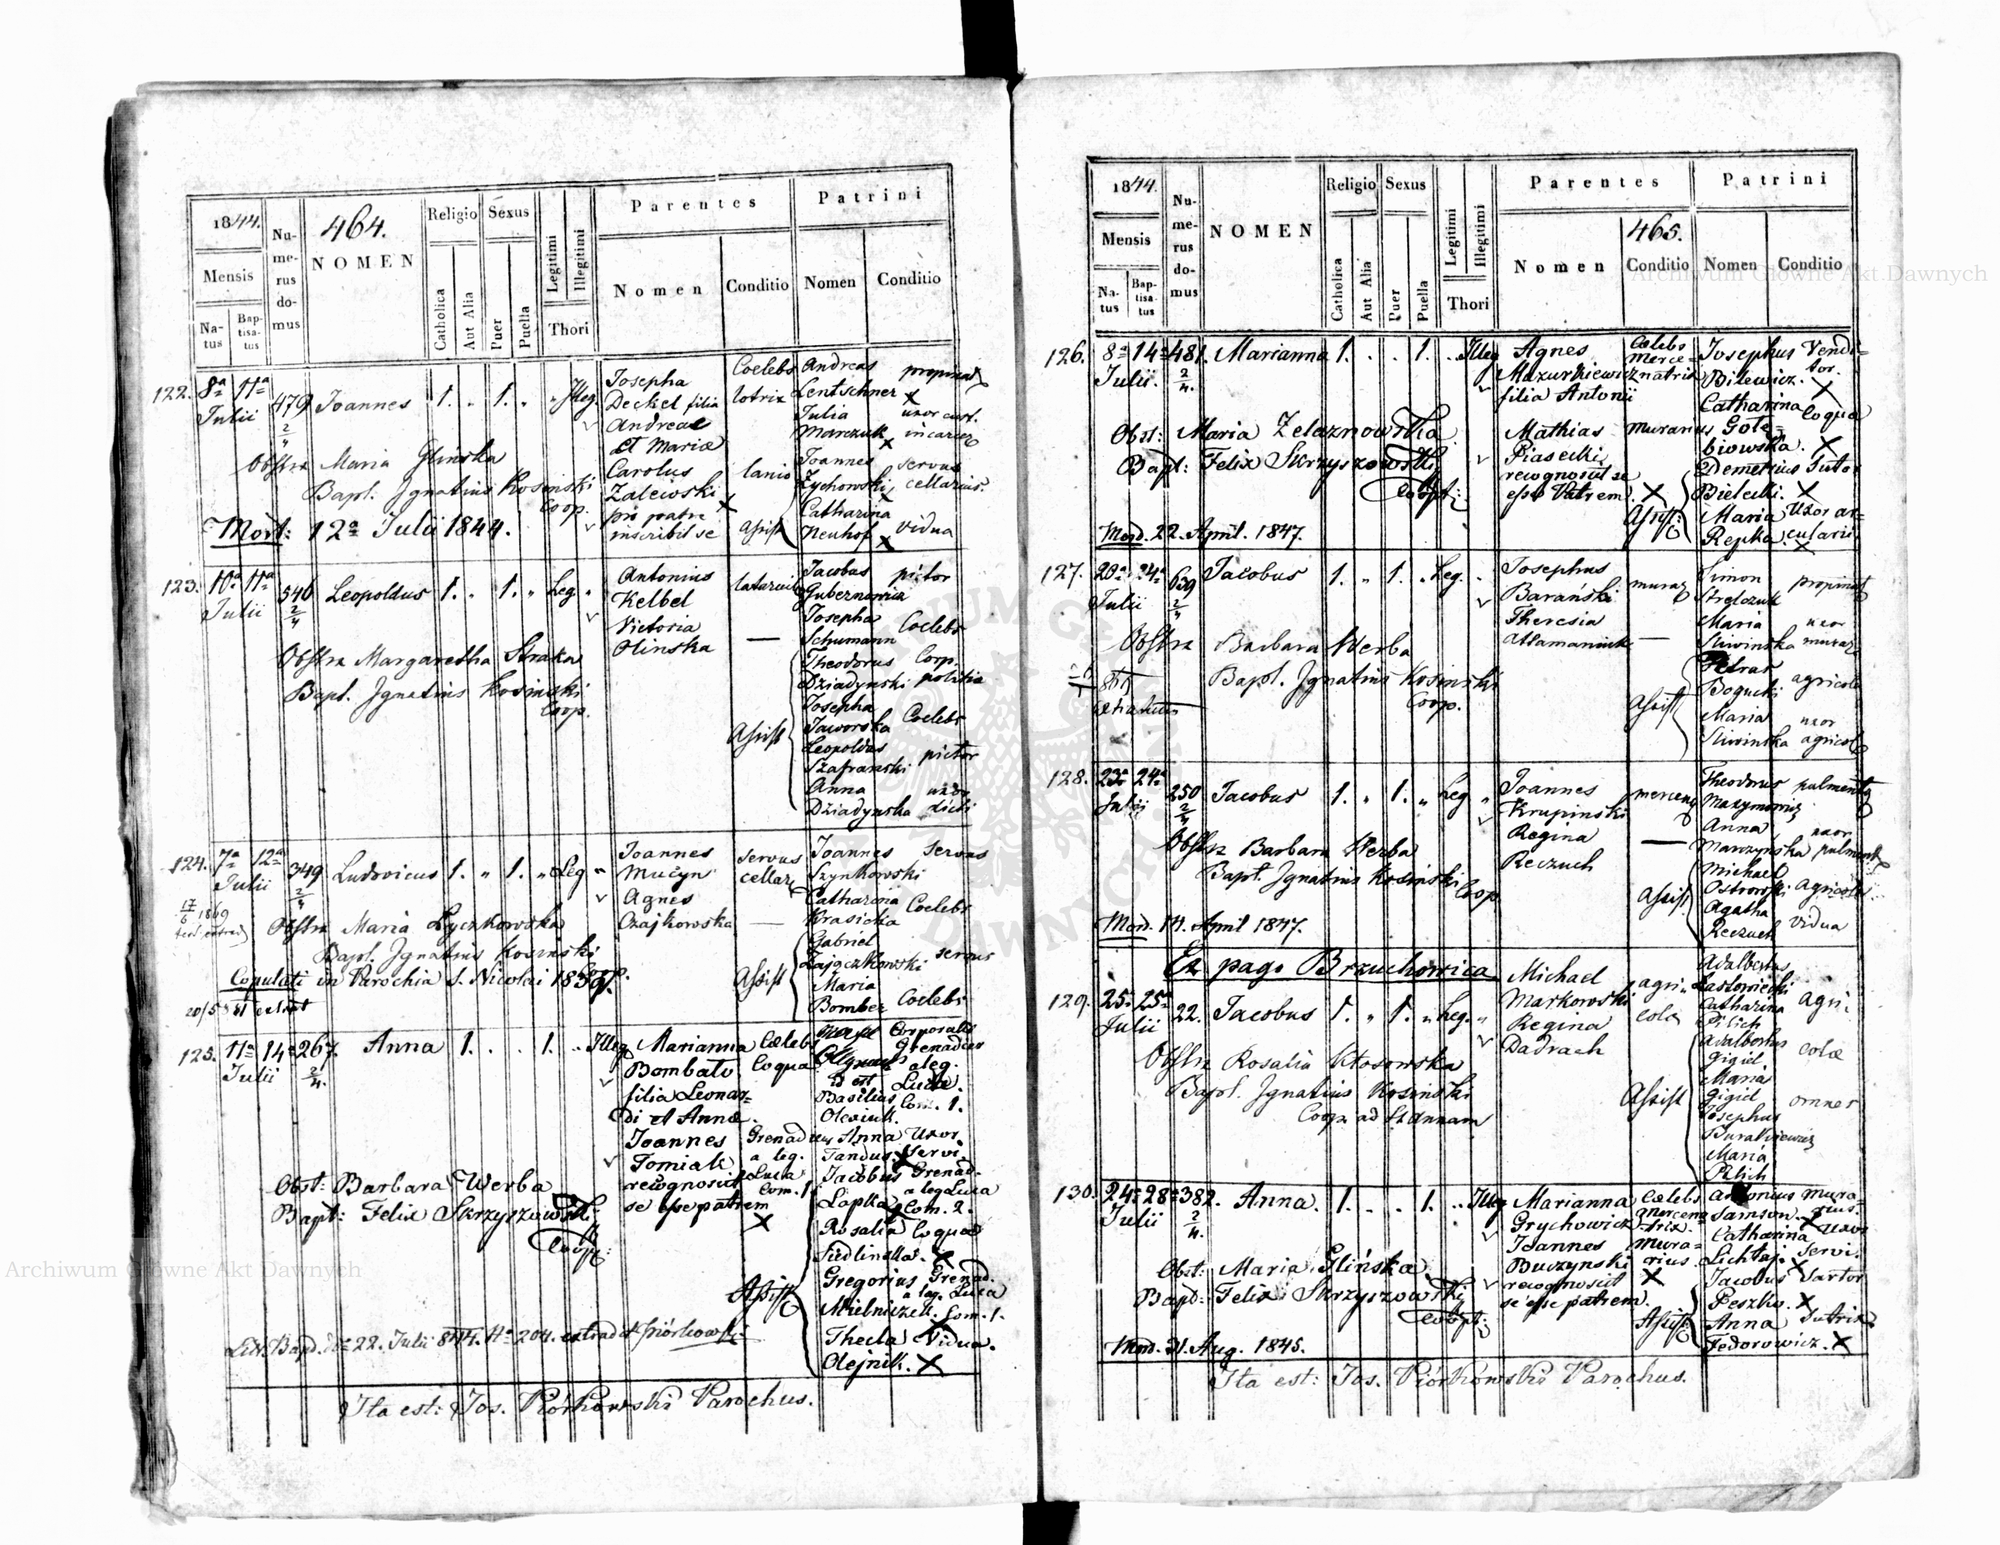 1844.
464.
Numerus domus
NOMEN
Religio
Sexus
Parentes
Patrini
Mensis
Natus
Baptisatus
Catholica
Aut Alia
Puer
Puella
Legitimi
Illegitimi
Thori
Nomen
Conditio
Nomen
Conditio
122. 8ª 11ª 479 Joannes 1. " 1. " " Illeg.
Julii
2/4
Josepha Coelebs
Deckel filia lotrix
Andreae
et Mariae
Carolus lanio
Zalewski
pro patre
inscribit se
Andreas propinat
Lentschner
Julia uxor
Marczuk
Joannes servus
Zychowski cellarius.
Assist
Catharina
Neuhof vidua
Obstrx Maria Glinska
Bapt. Ignatius Kosinski
Coop.
Mort: 12ª Julii 1844.
123. 10ª 11ª 546 Leopoldus 1. " 1. " Leg "
Julii
2/4
Antonius
Kelbel
Victoria —
Olinska
Jacobus pictor
Josepha Coelebs
Schumann
Theodorus Corp.
Dziadynski politiae
Josepha
Jaworska Coelebs
Assist
Leopoldus
Szafranski pictor
Anna uxor
Dziadynska dicti
Obstrx Margaretha Straka
Bapt. Ignatius Kosinski
Coop.
124. 7ª 12ª 349 Ludovicus 1. " 1. " Leg "
Julii
2/4
Joannes servus
Mucyn
Agnes
Czajkowska —
Joannes servus
Szynkowski
Catharina
Krasicka Coelebs
Gabriel
Zajączkowski servus
Assist
Maria
Bomber Coelebs
Obstrx Maria Lyczkowska
Bapt. Ignatius Kosinski
Copulati in Parochia S. Nicolai
125. 11ª 14ª 267. Anna 1. . . 1. .. Illeg
Julii
2/4.
Marianna Coelebs
Bombalo Coqua
filia Leonar=
di et Annae.
Joannes Grenadi
Tomiak a leg.
recognoscit Luca
se esse patrem Com. 1.
Corporalis
Grenadier
a leg.
Luca.
Basilius Com. 1.
Oleiuk.
Anna Uxor
Tandus. Servi.
Jacobus Grenad.
Lapka a leg Luca
Com. 2.
Rosalia Coqua
Siedlinska.
Gregorius Grenad.
a leg. Luca
Assist
Mielniczek. Com. 1.
Thecla Vidua.
Olejnik.
Obst: Barbara Werba
Bapt: Felix Skrzyszowski
Coop:
Ita est: Jos. Piórkowski Parochus.
1844.
Numerus domus
NOMEN
Religio
Sexus
Parentes
Patrini
465.
Mensis
Natus
Baptisatus
Catholica
Aut Alia
Puer
Puella
Legitimi
Illegitimi
Thori
Nomen
Conditio
Nomen
Conditio
126. 8ª 14ª 481. Marianna 1. . . 1. .. Illeg
Julii.
2/4.
Agnes Coelebs
Mazurkiewicz merce=
natrix
filia Antonii
Mathias murarius
Piasecki,
recognoscit se
esse Patrem.
Josephus Vendi=
Bilewicz. tor.
Catharina Coqua
Gołę=
biowska.
Demetrius Sutor
Bielecki.
Assist:
Maria Uxor ar=
Repka. cularii
Obst: Maria Zelaznowska
Bapt: Felix Skrzyszowski
Coop:
Mort. 22. April. 1847.
127. 20ª 24ª 639 Jacobus 1. " 1. " Leg. "
Julii
2/4
Josephus
Barański
Theresia
Attamaniuk —
Simon propinat
Strelczuk
Maria uxor
Sliwinska
Petrus
Bogucki agricola
Assist
Maria uxor
Sliwinska agricolae
Obstrx Barbara Werba
Bapt. Ignatius Kosinski
Coop.
128. 23ª 24ª 250 Jacobus 1. " 1. " Leg "
Julii
2/4
Joannes
Krupinski
Regina —
Reczuch
Theodorus
Anna uxor
Marzynska
Michael
Ostrowski agricola
Assist
Agatha
Reczuch vidua
Obstrx Barbara Werba
Bapt. Ignatius Kosinski
Coop
Mort. 14. April 1847.
Ex pago Brzuchowica
129. 25. 25ª 22. Jacobus 1. " 1. " Leg. "
Julii
Michael agri=
Markowski colae
Regina
Dadrach
Adalbertus
Catharina agri=
Pilich
Adalbertus
Gigiel colae
Maria
Gigiel
Assist
omnes
Josephus
Maria
Pilich
Obstrx Rosalia Kłosowska
Bapt. Ignatius Kosinski
Coop ad St Annam
130. 24ª 28ª 382. Anna. 1. . . 1. .. Illeg
Julii
2/4.
Marianna Coelebs
Grychowicz mercena=
trix.
Joannes mura=
Buczynski rius.
recognoscit
se esse patrem.
Antonius mura=
Samson. rius
Catharina uxor
Servi.
Jacobus Sartor
Peszko.
Assist:
Anna Sutrix
Fedorowicz.
Obst: Maria Glińska
Bapt: Felix Skrzyszowski
Coop:
Mort. 31. Aug. 1845.
Ita est: Jos. Piórkowski Parochus.
Archiwum Główne Akt Dawnych
Archiwum Główne Akt Dawnych